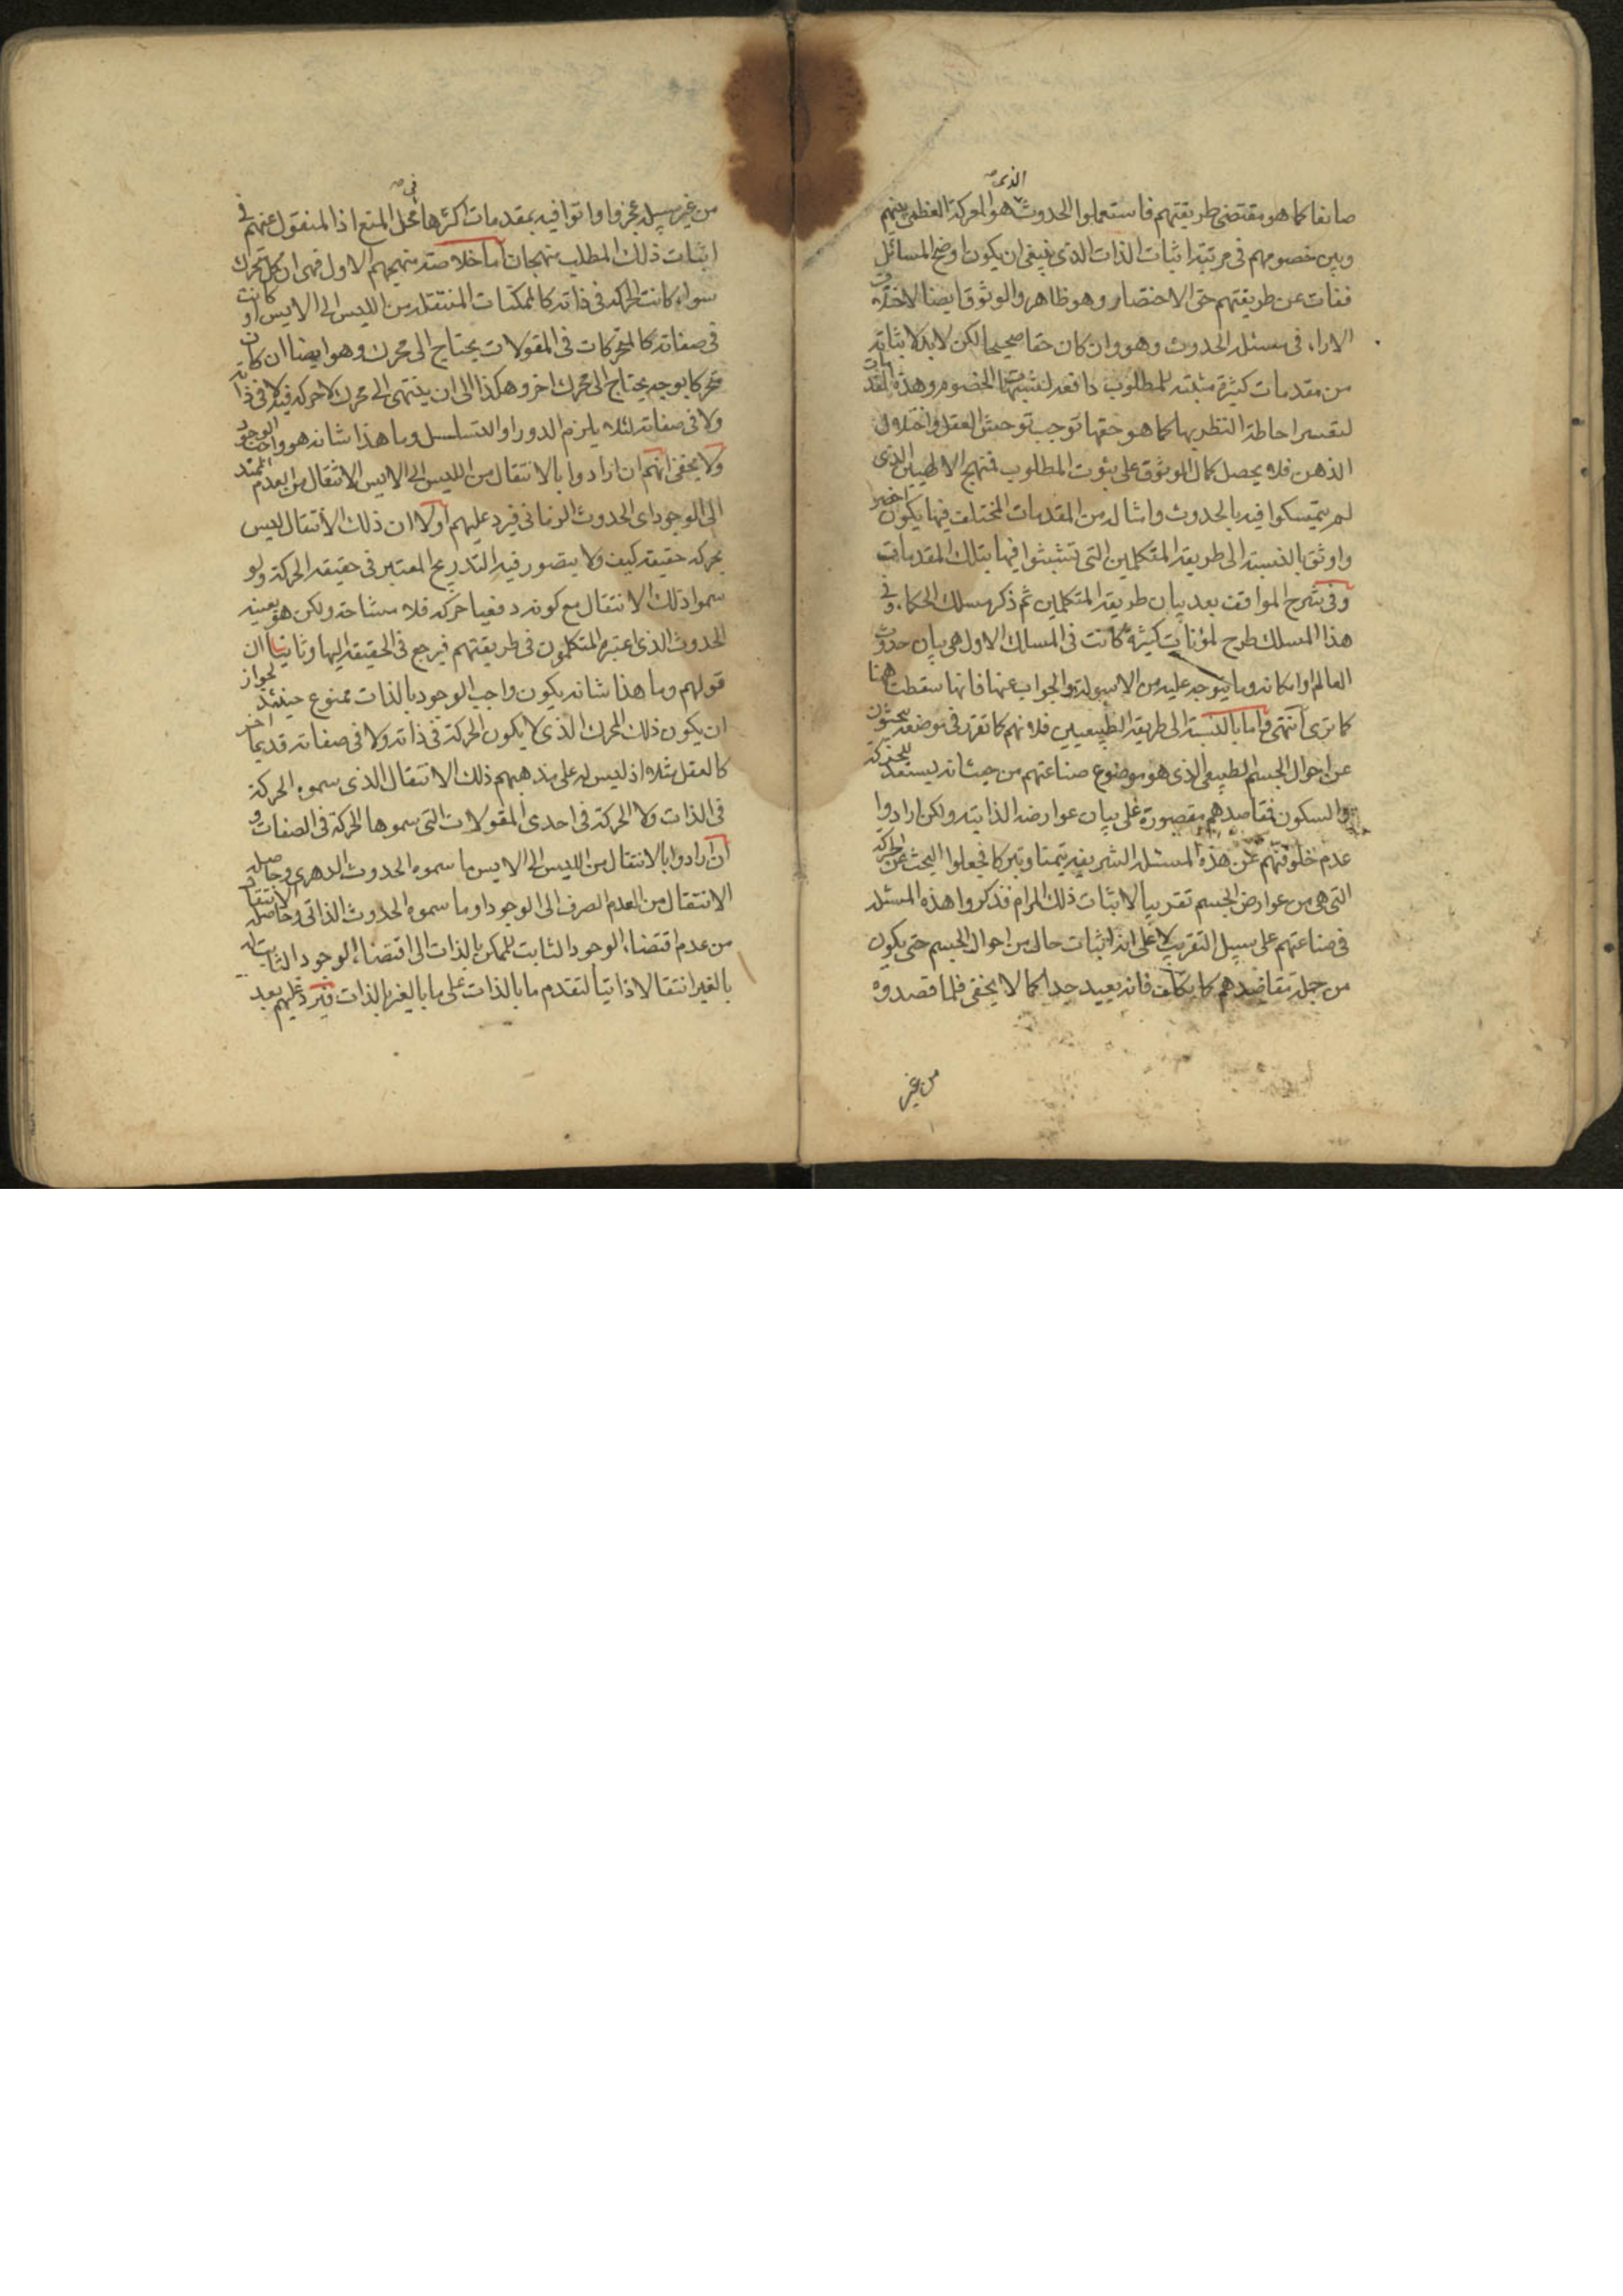 صانعا كما هو مقتضى طريقتهم فاستعملوا الحدوث الذى هو المعركة العظمى بينهم
وبين خصومهم فى مرتبة اثبات الذات الذى ينبغى ان يكون اوضح المسائل
ففات عن طريقتهم حق الاختصار وهو ظاهر والوثوق ايضا لاختلاف
الاراء فى مسئلة الحدوث وهو وان كان حقا صحيحا لكن لابد لاثباته
من مقدمات كثيرة مثبتة للمطلوب دافعة لشبهات الخصوم وهذه المقدمات
لتعسر احاطة النظر بها كما هو حقها توجب توحش العقل واختلال
الذهن فلا يحصل كمال الوثوق على ثبوت المطلوب فنهج الالهيين الذى
لم يتمسكوا فيه بالحدوث وامثاله من المقدمات المختلف فيها يكون اخصر
واوثق بالنسبة الى طريقة المتكلمين التى تشبثوا فيها بتلك المقدمات
وفى شرح المواقف بعد بيان طريقة المتكلمين ثم ذكر مسلك الحكماء وفى
هذا المسلك طرح لمؤنات كثيرة كانت فى المسلك الاول هى بيان حدوث
العالم او امكانه وما يتوجه عليه من الاسولة والجواب عنها فانها سقطت ههنا
كما ترى انتهى واما بالنسبة الى طريقة الطبيعيين فلانهم كما تقرر فى موضعه يبحثون
عن احوال الجسم الطبيعى الذى هو موضوع صناعتهم من حيث انه يستعد للحركة
والسكون فمقاصدهم مقصورة على بيان عوارضه الذاتية ولكن ارادوا
عدم خلو فنهم عن هذه المسئلة الشريفة تيمنا وتبركا فجعلوا البحث عن الحركة
التى هى من عوارض الجسم تقريبا لاثبات ذلك المرام فذكروا هذه المسئلة
فى صناعتهم على سبيل التقريب لا على انه اثبات حال من احوال الجسم حتى يكون
من جملة مقاصدهم كما تكلف فانه بعيد جدا كما لا يخفى فلما قصدوه
من غير
من غير سبيله عجزوا واتوا فيه بمقدمات اكثرها فى محل المنع اذ المنقول عنهم فى
اثبات ذلك المطلب نهجان اما خلاصة منهجهم الاول فهى ان كل متحرك
سواء كانت الحركة فى ذاته كالممكنات المنتقلة من الليس الى الايس او كانت
فى صفاته كالمتحركات فى المقولات يحتاج الى محرك وهو ايضا ان كان
متحركا بوجه يحتاج الى محرك اخر وهكذا الى ان ينتهى الى محرك لا حركة فيه لا فى ذاته
ولا فى صفاته لئلا يلزم الدور او التسلسل وما هذا شانه هو واجب الوجود
ولا يخفى انهم ان ارادوا بالانتقال من الليس الى الايس الانتقال من العدم الممتد
الى الوجود اى الحدوث الزمانى فيرد عليهم اولا ان ذلك الانتقال ليس
بحركة حقيقة كيف ولا يتصور فيه التدريج المعتبر فى حقيقة الحركة ولو
سموا ذلك الانتقال مع كونه دفعيا حركة فلا مشاحة ولكن هو بعينه
الحدوث الذى اعتبره المتكلمون فى طريقتهم فيرجع فى الحقيقة اليها وثانيا ان
قولهم وما هذا شانه يكون واجب الوجود بالذات ممنوع حينئذ لجواز
ان يكون ذلك المحرك الذى لا يكون الحركة فى ذاته ولا فى صفاته قديما اخر
كالعقل مثلا اذ ليس له على مذهبهم ذلك الانتقال الذى سموه الحركة
فى الذات ولا الحركة فى احدى المقولات التى سموها الحركة فى الصفات و
ان ارادوا بالانتقال من الليس الى الايس ما سموه الحدوث الدهرى وحاصله
الانتقال من العدم الصرف الى الوجود او ما سموه الحدوث الذاتى وحاصله الانتقال
من عدم اقتضاء الوجود الثابت للممكن بالذات الى اقتضاء الوجود الثابت له
بالغير انتقالا ذاتيا لتقدم ما بالذات على ما بالغير بالذات فيرد عليهم بعد